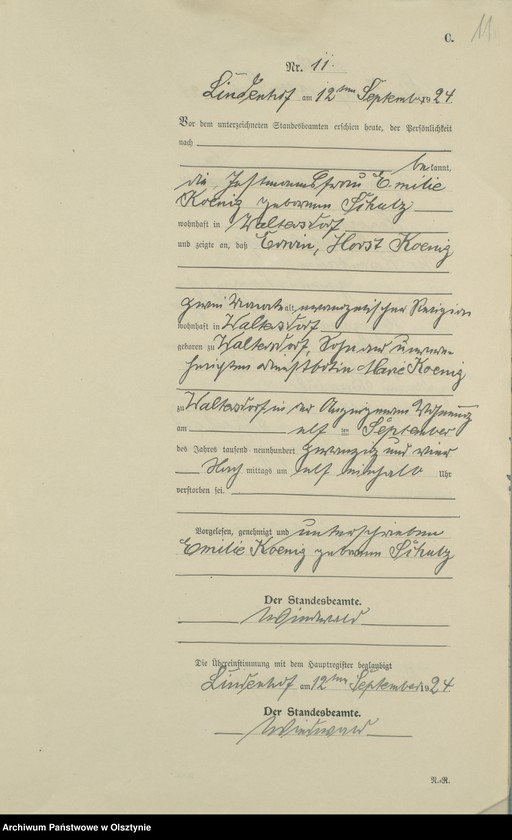 C.
11
Nr. 11.
Lindenhof am 12ten September 1924
Vor dem unterzeichneten Standesbeamten erschien heute, der Persönlichkeit
nach
bekannt,
die Instmannsfrau Emilie
Koenig geborene Schulz
wohnhaft in Waltersdorf
und zeigte an, daß Erwin, Horst Koenig
zwei Monate alt, evangelischer Religion
wohnhaft in Waltersdorf
geboren zu Waltersdorf, Sohn der unvere-
helichten Dienstbotin Marie Koenig
zu Waltersdorf in der Anzeigerin Wohnung
am elf ten September
des Jahres tausend neunhundert zwanzig und vier
Nach mittags um elf einhalb Uhr
verstorben sei.
Vorgelesen, genehmigt und unterschrieben
Emilie Koenig geborene Schulz
Der Standesbeamte.
Die Übereinstimmung mit dem Hauptregister beglaubigt
Lindenhof am 12ten September 1924
Der Standesbeamte.
N.-R.
Archiwum Państwowe w Olsztynie